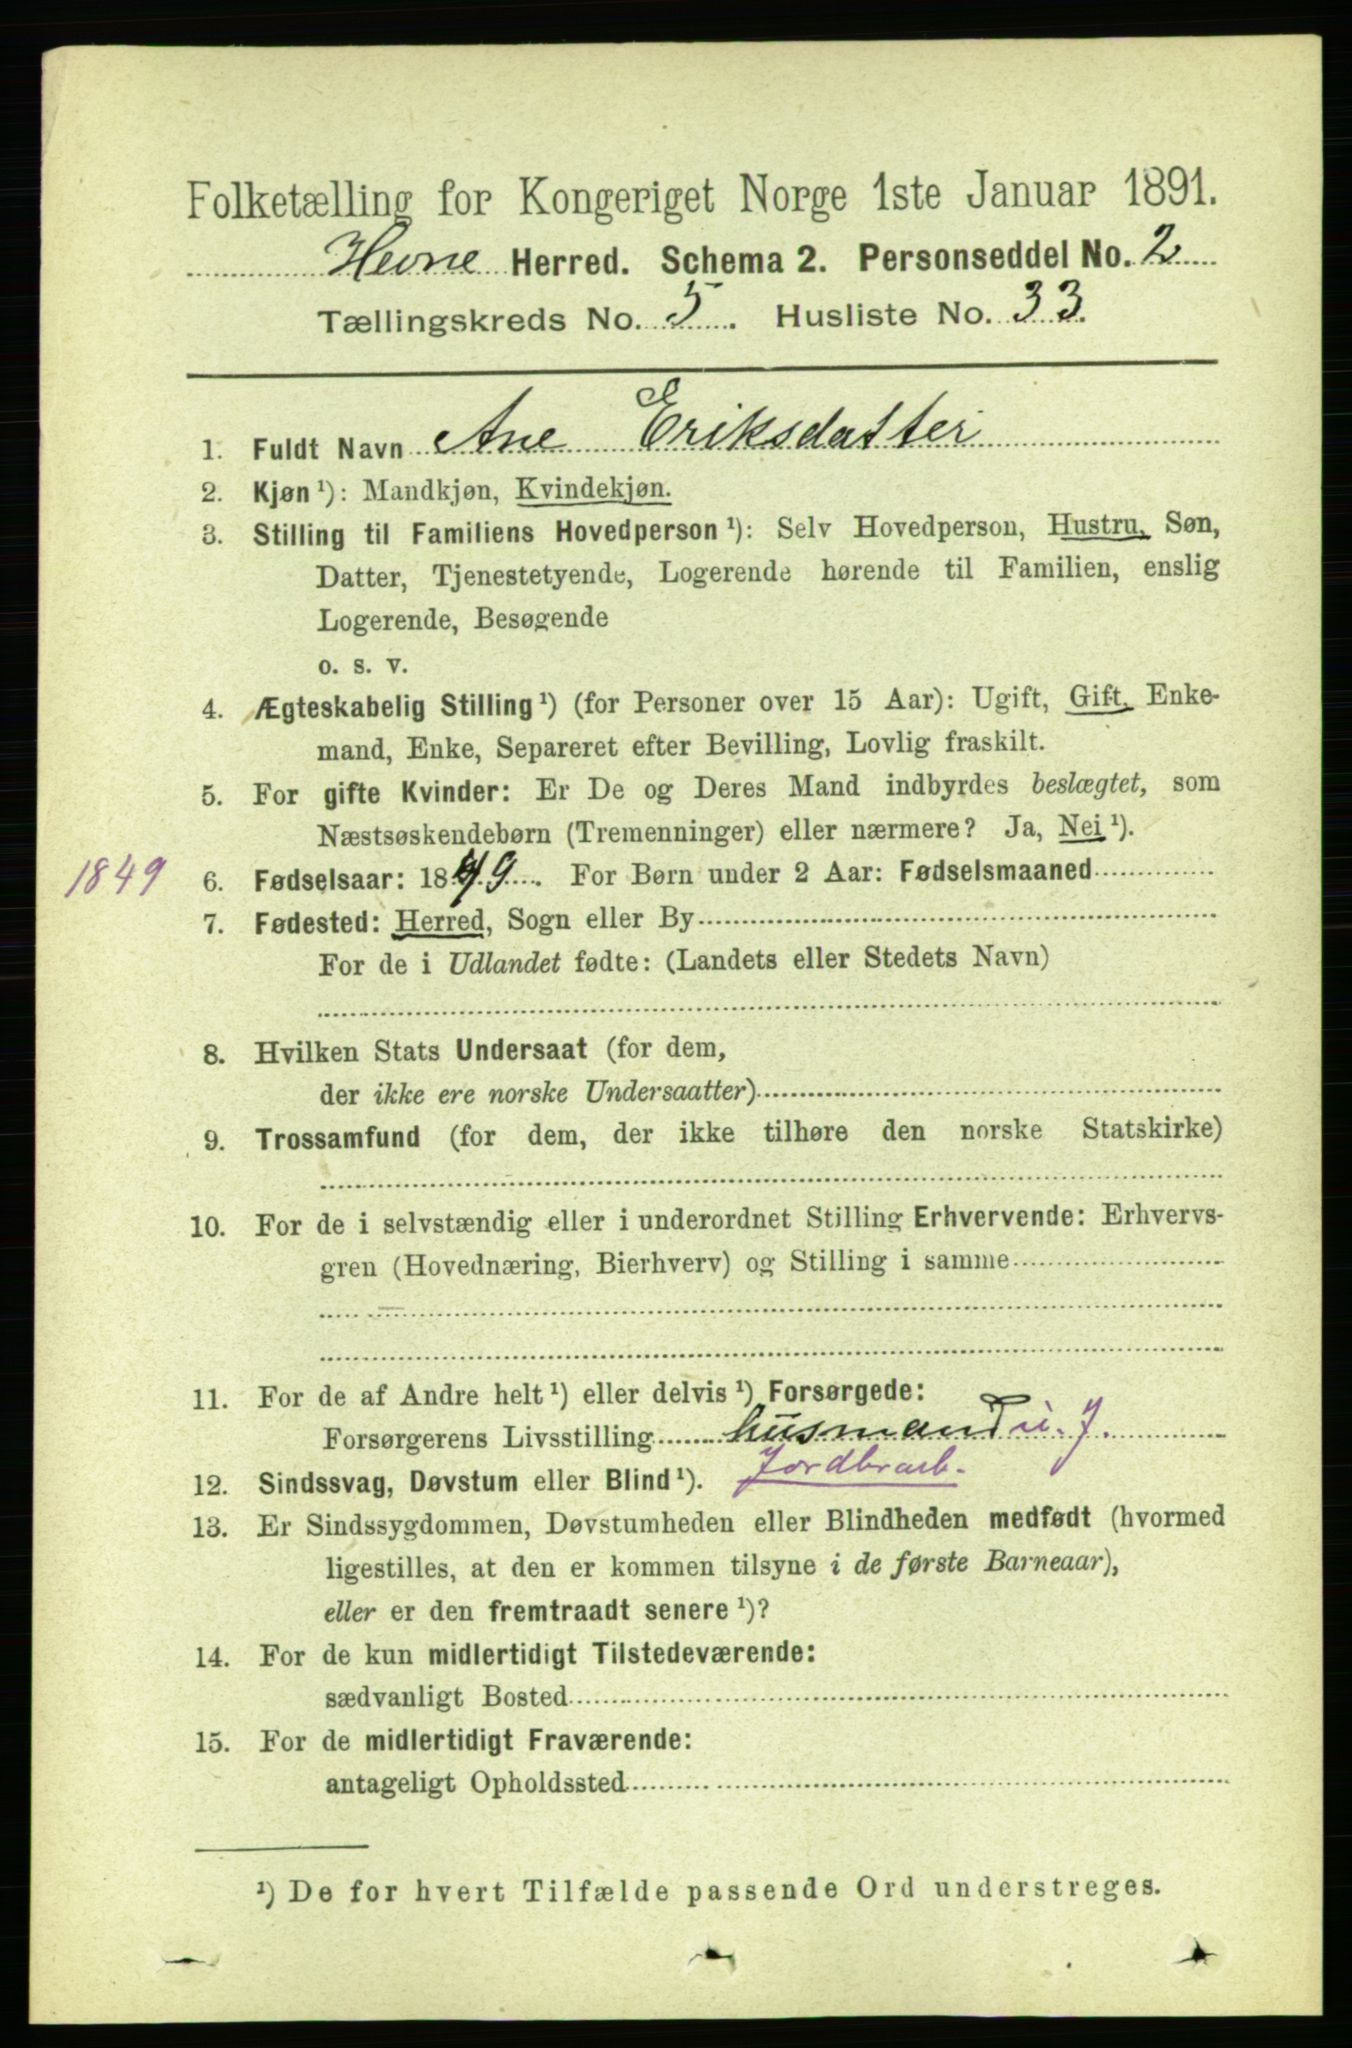 Folketælling for Kongeriget Norge 1ste Januar 1891.
Hevne Herred. Schema 2. Personseddel No. 2
Tællingskreds No. 5. Husliste No. 33.
1. Fuldt Navn Ane Eriksdatter
2. Kjøn ¹): Mandkjøn, Kvindekjøn.
3. Stilling til Familiens Hovedperson ¹): Selv Hovedperson, Hustru, Søn,
Datter, Tjenestetyende, Logerende hørende til Familien, enslig
Logerende, Besøgende
o. s. v.
4. Ægteskabelig Stilling ¹) (for Personer over 15 Aar): Ugift, Gift, Enke-
mand, Enke, Separeret efter Bevilling, Lovlig fraskilt.
5. For gifte Kvinder: Er De og Deres Mand indbyrdes beslægtet, som
Næstsøskendebørn (Tremenninger) eller nærmere? Ja, Nei ¹).
1849 6. Fødselsaar: 1849. For Børn under 2 Aar: Fødselsmaaned
7. Fødested: Herred, Sogn eller By
For de i Udlandet fødte: (Landets eller Stedets Navn)
8. Hvilken Stats Undersaat (for dem,
der ikke ere norske Undersaatter)
9. Trossamfund (for dem, der ikke tilhøre den norske Statskirke)
10. For de i selvstændig eller i underordnet Stilling Erhvervende: Erhvervs-
gren (Hovednæring, Bierhverv) og Stilling i samme
11. For de af Andre helt ¹) eller delvis ¹) Forsørgede:
Forsørgerens Livsstilling husmand u. J.
Jordbrarb.
12. Sindssvag, Døvstum eller Blind ¹).
13. Er Sindssygdommen, Døvstumheden eller Blindheden medfødt (hvormed
ligestilles, at den er kommen tilsyne i de første Barneaar),
eller er den fremtraadt senere ¹)?
14. For de kun midlertidigt Tilstedeværende:
sædvanligt Bosted
15. For de midlertidigt Fraværende:
antageligt Opholdssted
¹) De for hvert Tilfælde passende Ord understreges.